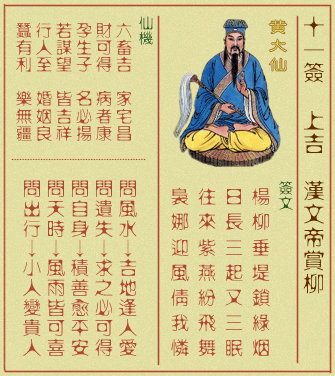 十一簽 上吉 漢文帝賞柳
黄大仙
簽文
楊柳垂堤鎖綠烟
日長三起又三眠
往來紫燕紛飛舞
裊娜迎風倩我憐
仙機
六畜吉 家宅昌
財可得 病者康
孕生子 名必揚
若謀望 皆吉祥
行人至 婚姻良
蠶有利 樂無疆
問風水→吉地逢人愛
問遺失→求之必可得
問自身→積善愈平安
問天時→風雨皆可喜
問出行→小人變貴人